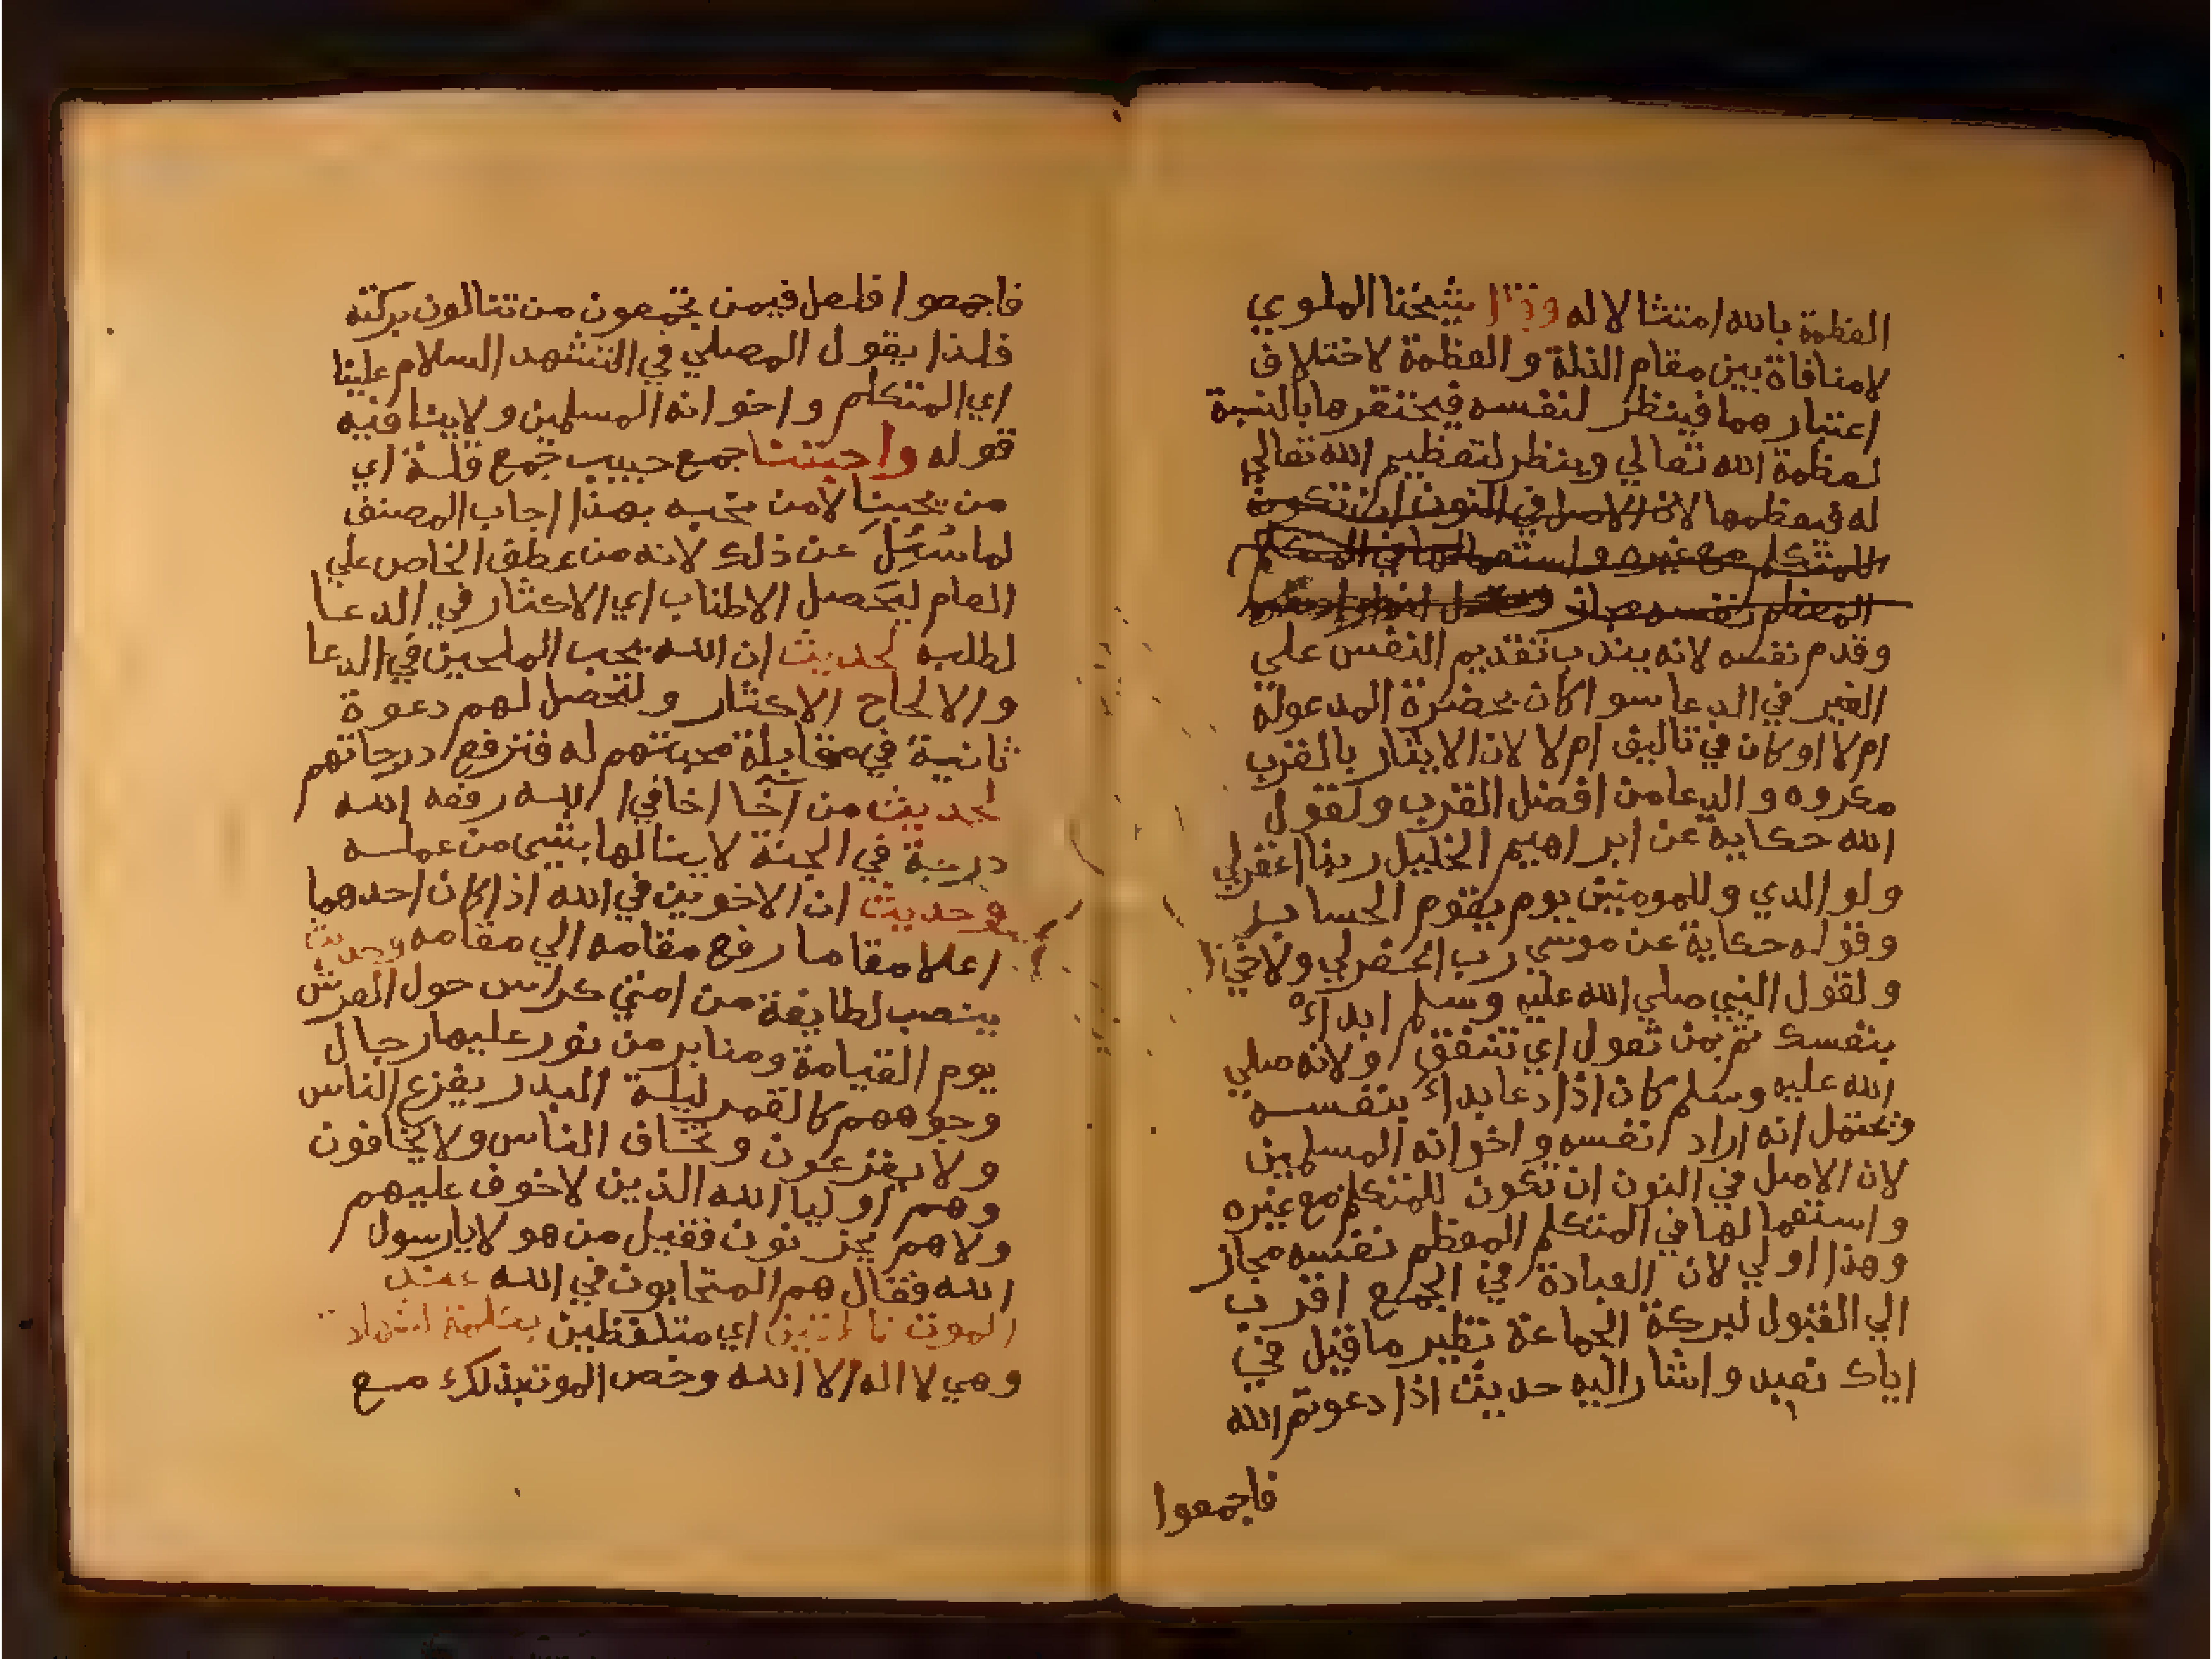 العظمة بالله امتثالا له وقال شيخنا الملوي
لامنافاة بين مقام الذلة والعظمة لاختلاف
اعتبارهما فينظر لنفسه فيحتقرها بالنسبة
لعظمة الله تعالي وينظر لتعظيم الله تعالي
له فيعظمها لان الاصل في النون ان تكون
للمتكلم مع غيره واستعمالها في المتكلم
المعظم نفسه مجاز
وقدم نفسه لانه يندب تقديم النفس علي
الغير في الدعا سوا كان بحضرة المدعوله
ام لا او كان في تاليف ام لا لان الايثار بالقرب
مكروه والدعا من افضل القرب ولقول
الله حكاية عن ابراهيم الخليل ربنا اغفرلي
ولوالدي وللمومنين يوم يقوم الحساب
وقوله حكاية عن موسي رب اغفرلي ولاخي
ولقول النبي صلي الله عليه وسلم ابدأ
بنفسك ثم بمن تعول اي تنفق ولانه صلي
الله عليه وسلم كان اذا دعا بدأ بنفسه
ويحتمل انه اراد نفسه واخوانه المسلمين
لان الاصل في النون ان تكون للمتكلم مع غيره
واستعمالها في المتكلم المعظم نفسه مجاز
وهذا اولي لان العبادة في الجمع اقرب
الي القبول لبركة الجماعة نظير ما قيل في
اياك نعبد واشار اليه حديث اذا دعوتم الله
فاجمعوا
فاجمعوا فلعل فيمن تجمعون من تنالون بركته
فلذا يقول المصلي في التشهد السلام علينا
اي المتكلم واخوانه المسلمين ولا ينافيه
قوله واحبتنا جمع حبيب جمع قلة اي
من يحبنا لا من نحبه بهذا اجاب المصنف
لما سُئِلَ عن ذلك لانه من عطف الخاص علي
العام ليحصل الاطناب اي الاكثار في الدعا
لطلبه لحديث ان الله يحب الملحين في الدعا
والالحاح الاكثار ولتحصل لهم دعوة
ثانية في مقابلة محبتهم له فترفع درجاتهم
لحديث من آخا اخا في الله رفعه الله
درجة في الجنة لا ينالها بشي من عمله
وحديث ان الاخوين في الله اذا كان احدهما
اعلا مقاما رفع مقامه الي مقامه وحديث
ينصب لطايفة من امتي كراس حول العرش
يوم القيامة ومنابر من نور عليها رجال
وجوههم كالقمر ليلة البدر يفزع الناس
ولا يفزعون وتخاف الناس ولا يخافون
وهم اوليا الله الذين لاخوف عليهم
ولاهم يحزنون فقيل من هولا يا رسول
الله فقال هم المتحابون في الله عند
الموت ناطقين اي متلفظين بكلمة الشهادة
وهي لا اله الا الله وخص الموت بذلك مع